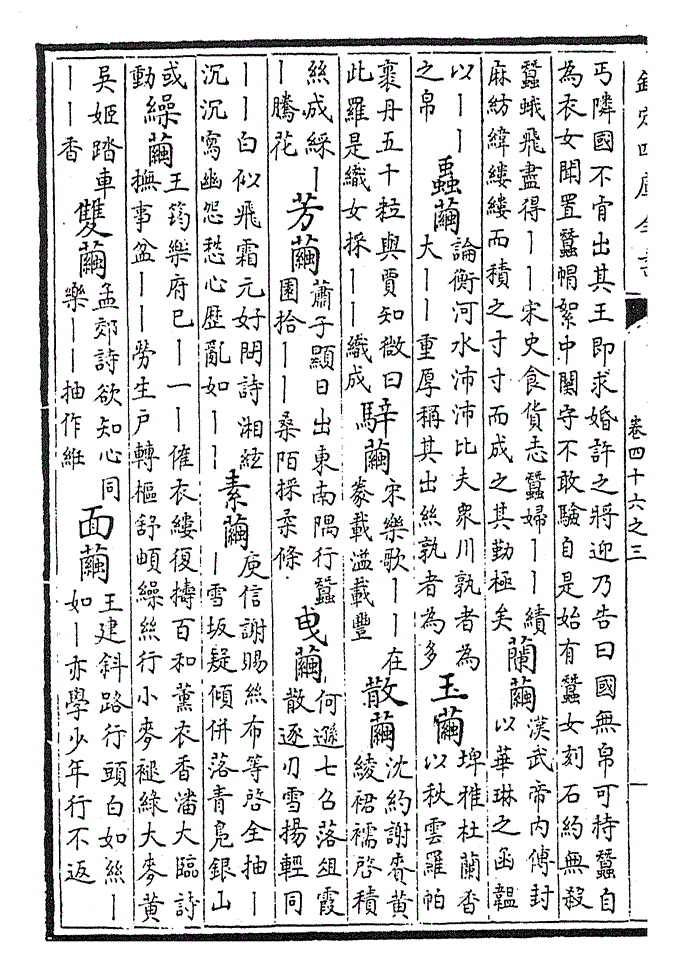 欽定四庫全書
卷四十六之三
丐隣國不肯出其王即求婚許之將迎乃告曰國無帛可持蠶自
為衣女聞置蠶帽絮中關守不敢驗自是始有蠶女刻石約無殺
蠶蛾飛盡得丨丨宋史食貨志蠶婦丨丨績
麻紡緯縷縷而積之寸寸而成之其勤極矣
蘭繭
漢武帝內傳封
以華琳之函韞
以丨丨
之帛
蟲繭
論衡河水沛沛比夫衆川孰者為
大丨丨重厚稱其出絲孰者為多
玉繭
埤雅杜蘭香
以秋雲羅帕
裹丹五十粒與賈知微曰
此羅是織女採丨丨織成
騂繭
宋樂歌丨丨在
豢載溢載豐
散繭
沈約謝賚黄
綾裙襦啓積
絲成綵丨
丨騰花
芳繭
蕭子顯日出東南隅行蠶
園拾丨丨桑陌採柔條
曳繭
何遜七召落俎霞
散逐刀雪揚輕同
丨丨白似飛霜元好問詩湘絃
沉沉寫幽怨愁心歴亂如丨丨
素繭
庾信謝賜絲布等啓全抽丨
丨雪坂疑傾併落青鳬銀山
或
動
繰繭
王筠樂府已丨一丨催衣縷復擣百和薰衣香潘大臨詩
撫事盆丨丨勞生戶轉樞舒頔繰絲行小麥褪綠大麥黄
吳姬踏車
丨丨香
雙繭
孟郊詩欲知心同
樂丨丨抽作絍
面繭
王建斜路行頭白如絲丨
如丨亦學少年行不返